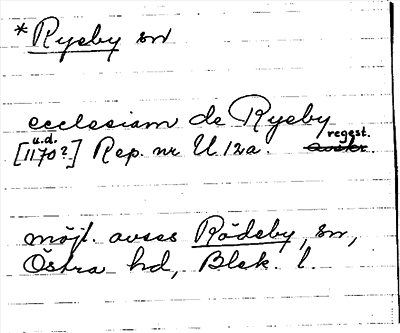 *Ryeby sn
ecclesiam de Ryeby
[u.d. 1170?] Rep. nr U 12a. regest.
möjl. avses Rödeby, sn,
Östra hd, Blek. l.